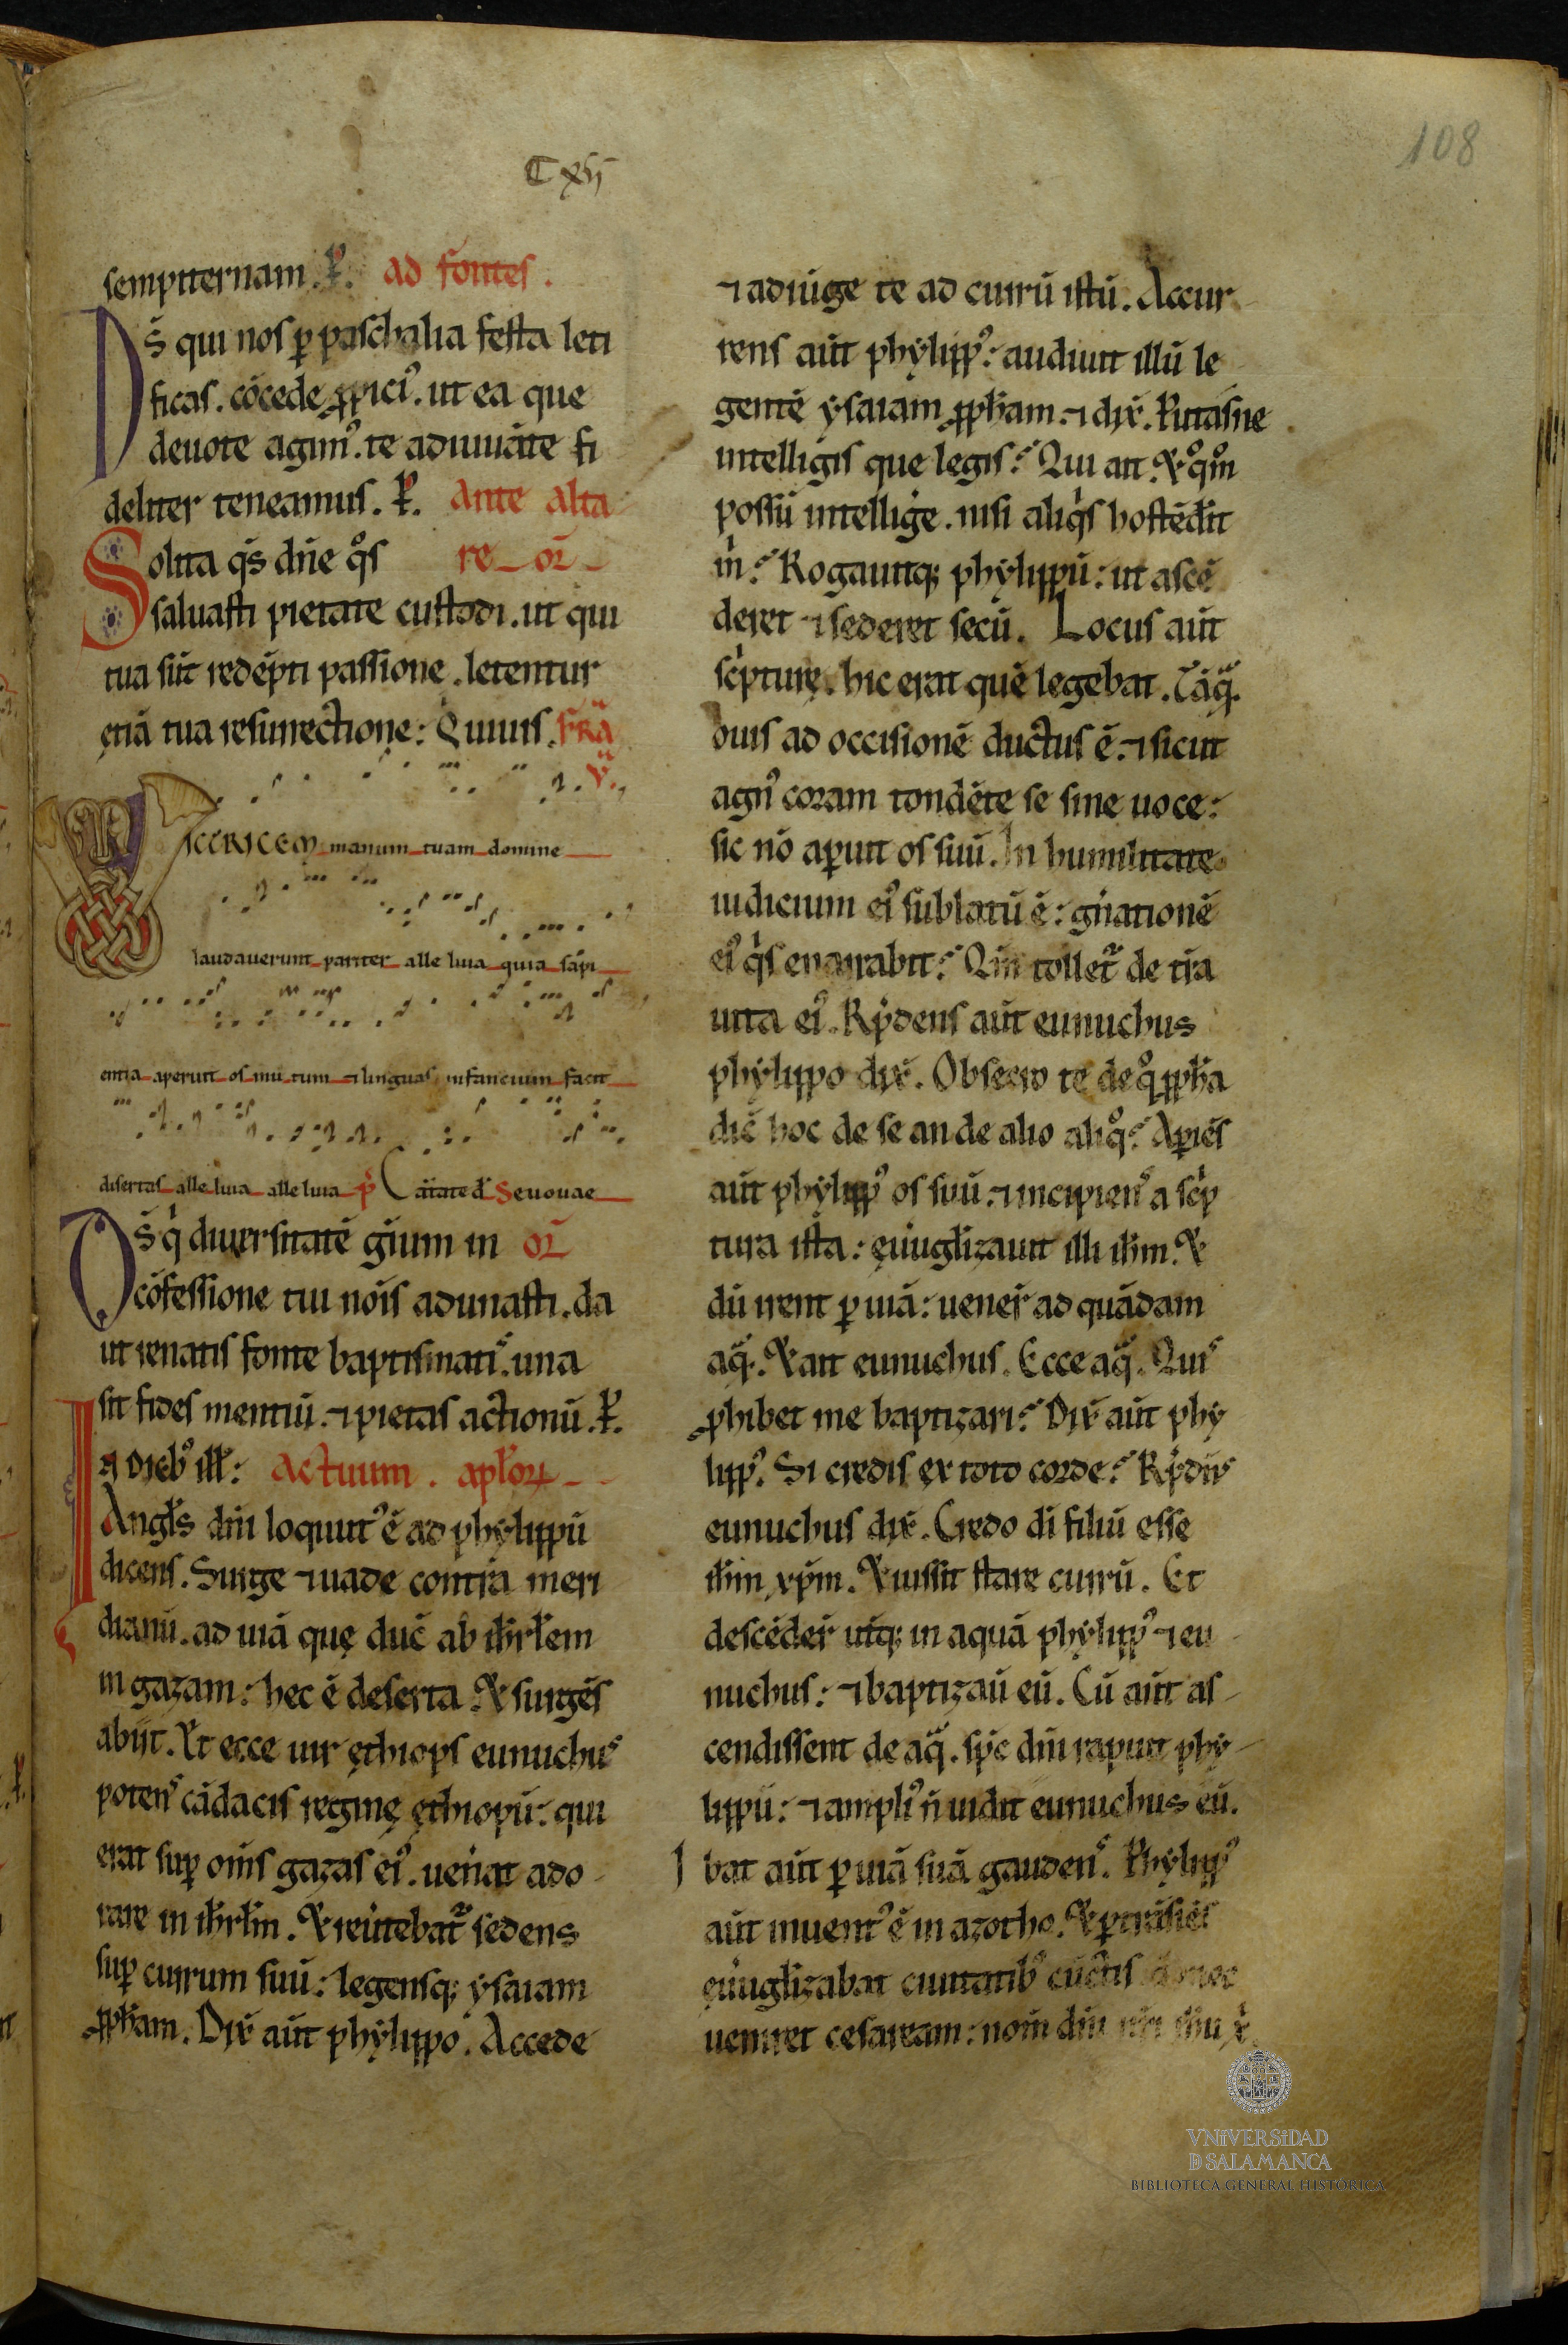 C xii
108
sempiternam. P̃. ad fontes.
Ds̄ qui nos p̱ paschalia festa leti
ficas. cōcede ꝓpici᾽. ut ea que
deuote agim᾽. te adiuuāte fi
deliter teneamus. P̃. Ante alta
Solita qs̄ dn̄e qͦs re or̄
saluasti pietate custodi. ut qui
tua sūt redēpti passione. letentur
etiā tua resurrectione: Q uiuis. fr̄a
v̄.
VICTRICEM manum tuam domine
laudauerunt pariter alle luia quia sapi
entia aperuit os mu tum ⁊ linguas infancium facit
disertas alle luia alle luia p̄ Cātate d̄ Seuouae
Ds̄ q̇ diuersitatē gn̄ium in or̄
cōfessione tui nōis adunasti. da
ut renatis fonte baptismatis. una
sit fides mentiū. ⁊ pietas actionū. P̃.
In dieb᾽ ill̄: Actuum. apl̄oꝝ
Angl̄s dn̄i loquut᾽ ē ad phylippū
dicens. Surge ⁊ uade contra meri
dianū. ad uiā quę duc̄ ab ih̄rl̄em
in gazam: hec ē deserta. & surgēs
abijt. Et ecce uir ęthiops eunuchus
potens cādacis reginę ęthiopū: qui
erat suꝑ om̄s gazas ei᾽. uen̄at ado
rare in ih̄rl̄m. & reūtebat᷑ sedens
suꝑ currum suū: legensq; ysaiam
ꝓph̄am. Dix̄ aūt phylippo. Accede
⁊ adiūge te ad currū istū. Accur
rens aūt phylipp᾽: audiuit illū le
gentē ysaiam ꝓph̄am. ⁊ dix̄. Putasne
intelligis que legis? Qui ait. & qͦm̊
possū intelliḡe. nisi aliq̇s hostēd̄it
m̊? Rogauitq; phylippū: ut ascē
deret ⁊ sederet secū. Locus aūt
scp̊turę. hic erat quē legebat. Tāq̄.
ouis ad occisionē ductus ē. ⁊ sicut
agn᾽ coram tondēte se sine uoce:
sic nō aꝑuit os suū. In humilitate
iudicium ei᾽ sublatū ē: gn̄ationē
ei᾽ q̇s enarrabit? Qm̄ tollet᷑ de tr̄a
uita ei᾽. Rn̄dens aūt eunuchus
phylippo dix̄. Obsecro te de qͦ ꝓph̄a
dic̄ hoc de se an de alio aliqͦ? Aꝑiēs
aūt phylipp᾽ os suū. ⁊ incipiens a scp̊
tura ista: euūgl̄izauit illi ih̄m. &
dū irent ꝑ uiā: uener̄ ad quādam
aqᷓ. & ait eunuchus. Ecce aqᷓ. Quis
ꝓhibet me baptizari? Dix̄ aūt phy
lipp᾽. Si credis ex toto corde? Rn̄dēs
eunuchus dix̄. Credo dī filiū esse
ih̄m xp̄m. & iussit stare currū. Et
descēder̄ utq; in aquā phylipp᾽ ⁊ eu
nuchus: ⁊ baptizau̅ eū. Cū aūt as
cendissent de aqᷓ. sp̄c dn̄i rapuit phy
lippū: ⁊ ampli᾽ n̄ uidit eunuchus eū.
I bat aūt ꝑ uiā suā gaudens. Phylipp᾽
aūt inuent᾽ ē in azotho. & ꝑtrāsiēs
euūgl̄izabat ciuitatib᾽ cūctis donec
ueniret cesaream: nom̄ dn̄i nr̄i ih̄u x̄.
VNiVERSiDAD
D SALAMANCA
BIBLIOTECA GENERAL HISTÓRICA